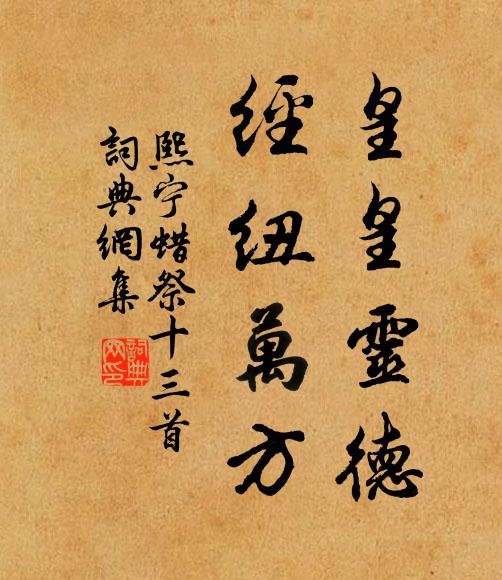 皇皇靈德
經紐萬方
熙宁蜡祭十三首
詞典網集
詞典
网印